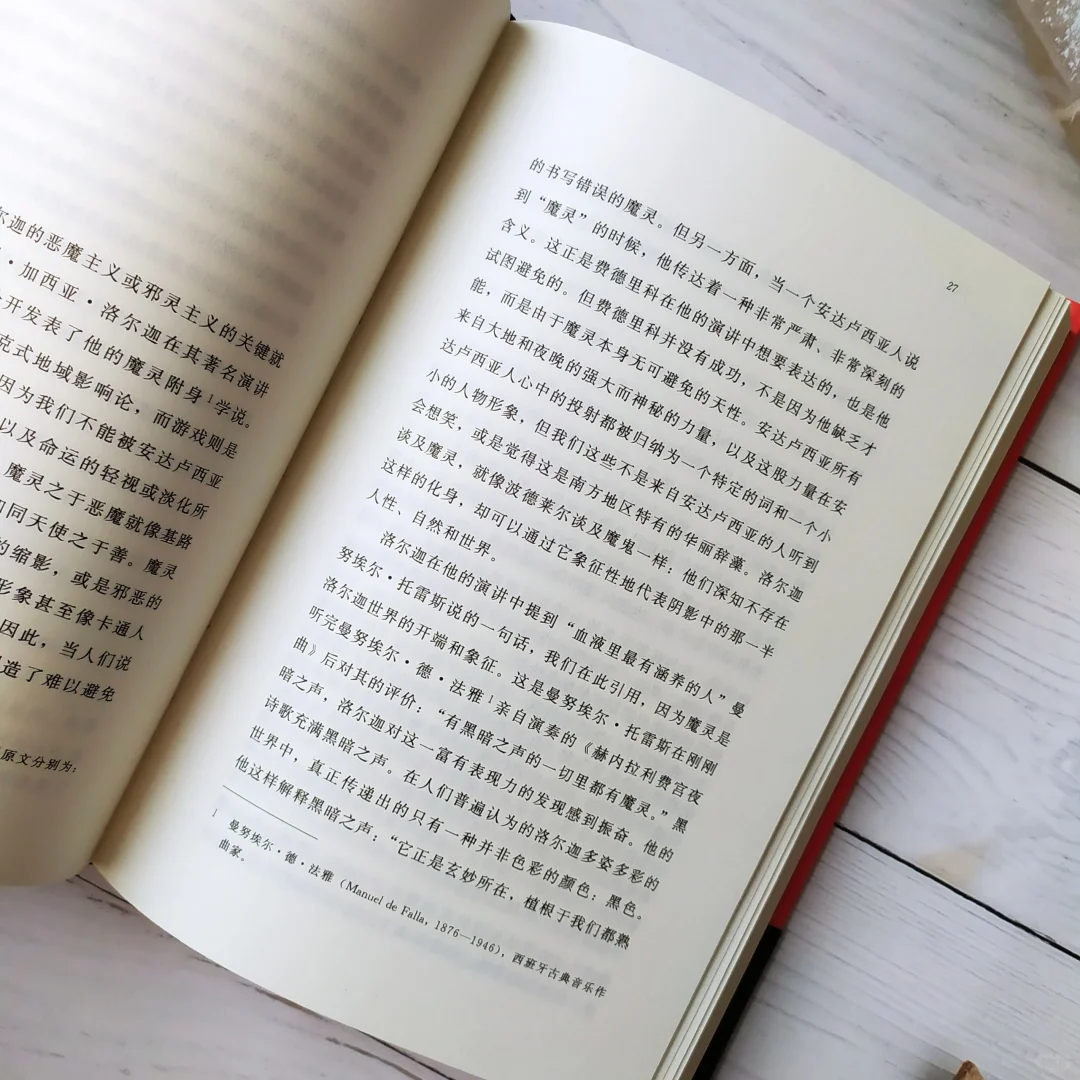 尔迦的恶魔主义或邪灵主义的关键就
·加西亚·洛尔迦在其著名演讲
开发表了他的魔灵附身1学说。
克式地域影响论，而游戏则是
因为我们不能被安达卢西亚
以及命运的轻视或淡化所
魔灵之于恶魔就像基路
同天使之于善。魔灵
的缩影，或是邪恶的
形象甚至像卡通人
因此，当人们说
造了难以避免
原文分别为：
27
的书写错误的魔灵。但另一方面，当一个安达卢西亚人说
到“魔灵”的时候，他传达着一种非常严肃、非常深刻的
含义。这正是费德里科在他的演讲中想要表达的，也是他
试图避免的。但费德里科并没有成功，不是因为他缺乏才
能，而是由于魔灵本身无可避免的天性。安达卢西亚所有
来自大地和夜晚的强大而神秘的力量，以及这股力量在安
达卢西亚人心中的投射都被归纳为一个特定的词和一个小
小的人物形象，但我们这些不是来自安达卢西亚的人听到
会想笑，或是觉得这是南方地区特有的华丽辞藻。洛尔迦
谈及魔灵，就像波德莱尔谈及魔鬼一样：他们深知不存在
这样的化身，却可以通过它象征性地代表阴影中的那一半
人性、自然和世界。
洛尔迦在他的演讲中提到“血液里最有涵养的人”曼
努埃尔·托雷斯说的一句话，我们在此引用，因为魔灵是
洛尔迦世界的开端和象征。这是曼努埃尔·托雷斯在刚刚
听完曼努埃尔·德·法雅1亲自演奏的《赫内拉利费宫夜
曲》后对其的评价：“有黑暗之声的一切里都有魔灵。”黑
暗之声，洛尔迦对这一富有表现力的发现感到振奋。他的
诗歌充满黑暗之声。在人们普遍认为的洛尔迦多姿多彩的
世界中，真正传递出的只有一种并非色彩的颜色：黑色。
他这样解释黑暗之声：“它正是玄妙所在，植根于我们都熟
1 曼努埃尔·德·法雅（Manuel de Falla, 1876—1946），西班牙古典音乐作
曲家。